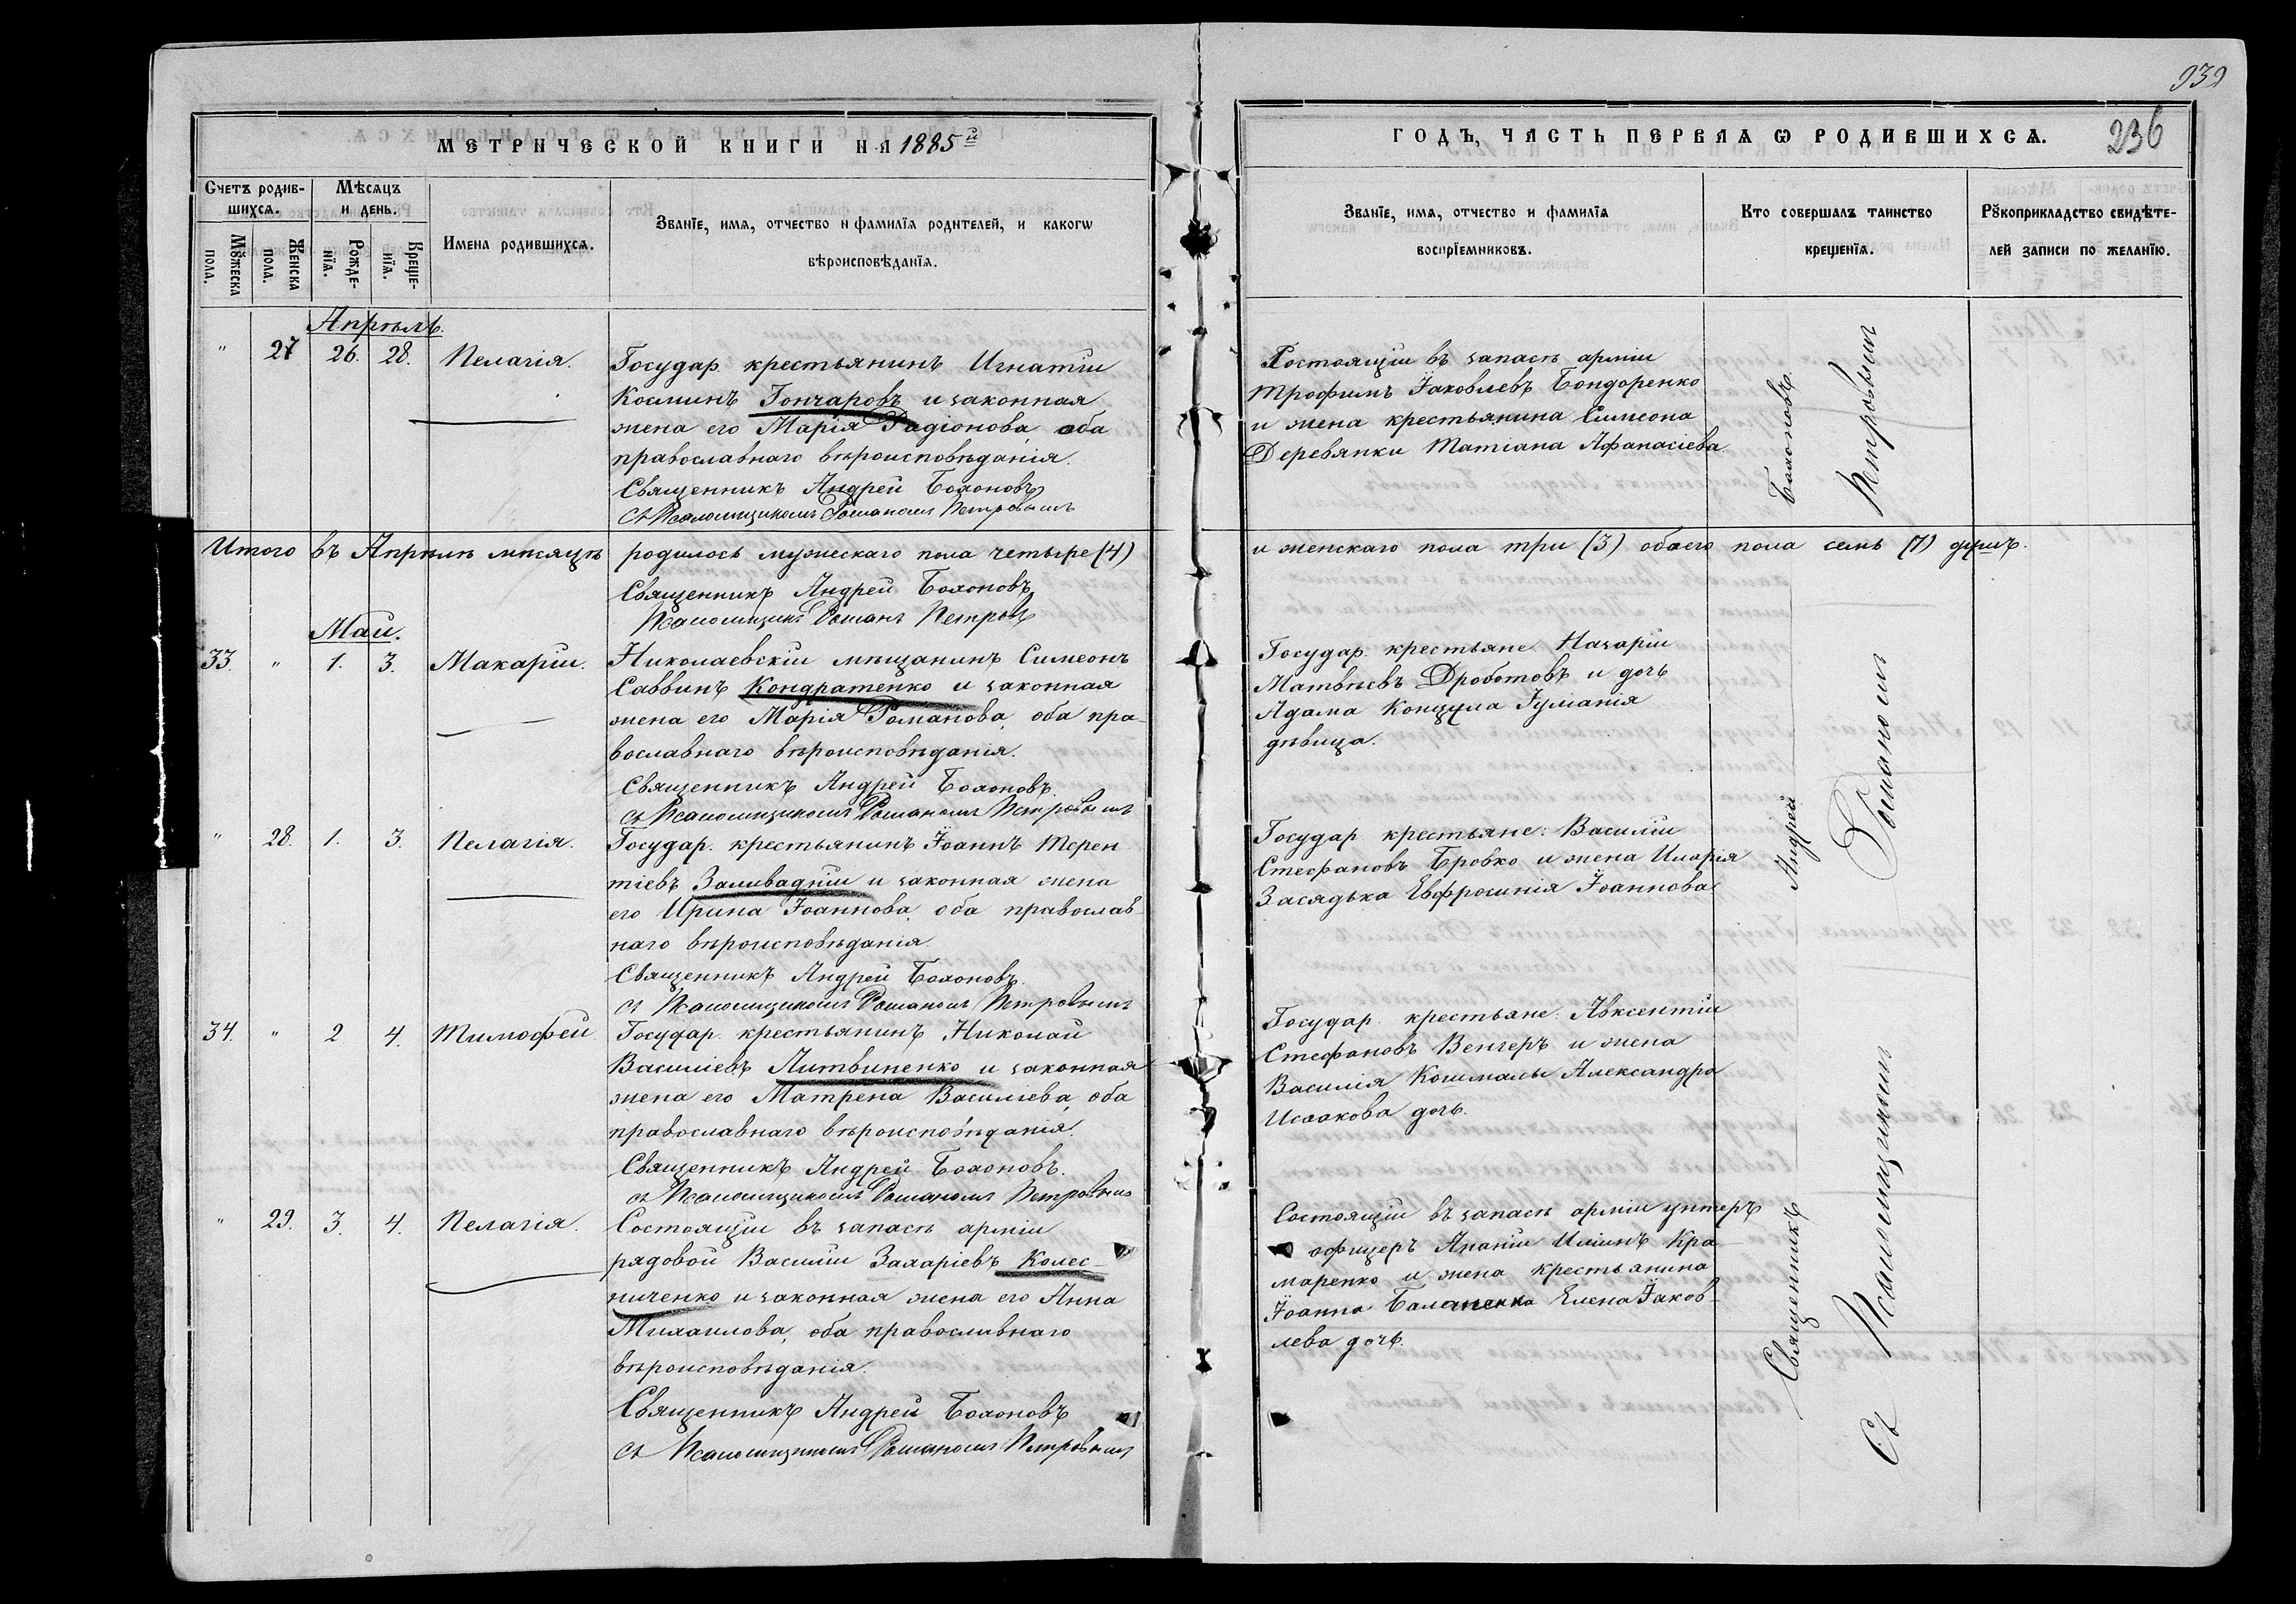 939
МЕТРИЧЕСКОЙ КНИГИ НА 1885й
ГОДЪ, ЧАСТЬ ПЕРВАѦ Ѡ РОДИВШИХСѦ.
236
Счетъ родив-
шихсѧ.
Мѣсѧцъ
и день.
Мꙋжеска
пола.
Женска
пола.
Рожде-
нїѧ.
Креще-
нїѧ.
Имена родившихсѧ.
Званїе, имѧ, отчество и фамилїѧ родителей, и какогѡ
вѣроисповѣданїѧ.
Званїе, имѧ, отчество и фамилїѧ
воспрїемниковъ.
Кто совершалъ таинство
крещенїѧ.
Рꙋкоприкладство свидѣте-
лей записи по желанїю.
Апрѣль.
" 27 26. 28. Пелагія.
Государ. крестьянинъ Игнатій
Косминъ Гончаровъ и законная
жена его Марія Радіонова, оба
православнаго вѣроисповѣданія.
Священникъ Андрей Бохоновъ
съ Псаломщикомъ Романомъ Петровымъ
Состоящій въ запасѣ арміи
Трофимъ Іаковлевъ Бондоренко
и жена крестьянина Симеона
Деревянки Татіана Афанасіева.
Итого въ Апрѣлѣ мѣсяцѣ родилось мужескаго пола четыре (4)
и женскаго пола три (3) обоего пола семь (7) душъ.
Священникъ Андрей Бохоновъ
Псаломщикъ Романъ Петровъ
Май.
33. " 1. 3. Макарій.
Николаевскій мѣщанинъ Симеонъ
Саввинъ Кондратенко и законная
жена его Марія Романова, оба пра-
вославнаго вѣроисповѣданія.
Священникъ Андрей Бохоновъ.
съ Псаломщикомъ Романомъ Петровымъ
Государ. крестьяне Назарій
Матвѣевъ Дроботовъ и дочь
Адама Концула Іуліанія
дѣвица.
" 28. 1. 3. Пелагія.
Государ. крестьянинъ Іоаннъ Терен
тіевъ Заливадній и законная жена
его Ирина Іоаннова, оба православ-
наго вѣроисповѣданія.
Священникъ Андрей Бохоновъ.
съ Псаломщикомъ Романомъ Петровымъ
Государ крестьяне: Василій
Стефановъ Бровко и жена Иларія
Засядька Евфросинія Іоаннова
34. " 2 4. Тимофей.
Государ. крестьянинъ Николай
Василіевъ Литвиненко и законная
жена его Матрена Василіева, оба
православнаго вѣроисповѣданія.
Священникъ Андрей Бохоновъ.
съ Псаломщикомъ Романомъ Петровымъ
Государ. крестьяне: Авксентій
Стефановъ Венгеръ и жена
Василія Кошмалы Александра
Исаакова дочь.
" 29. 3. 4. Пелагія.
Состоящій въ запасѣ арміи
рядовой Василій Захаріевъ Колес-
ниченко и законная жена его Анна
Михаилова, оба православнаго
вѣроисповѣданія.
Священникъ Андрей Бохоновъ
съ Псаломщикомъ Романомъ Петровымъ
Состоящій въ запасѣ арміи унтеръ
офицеръ Ананій Иліинъ Кра-
маренко и жена крестьянина
Іоанна Елена Іаков-
лева дочь.
Священникъ Андрей Бохоновъ.
Съ Псаломщикомъ Романомъ Петровымъ